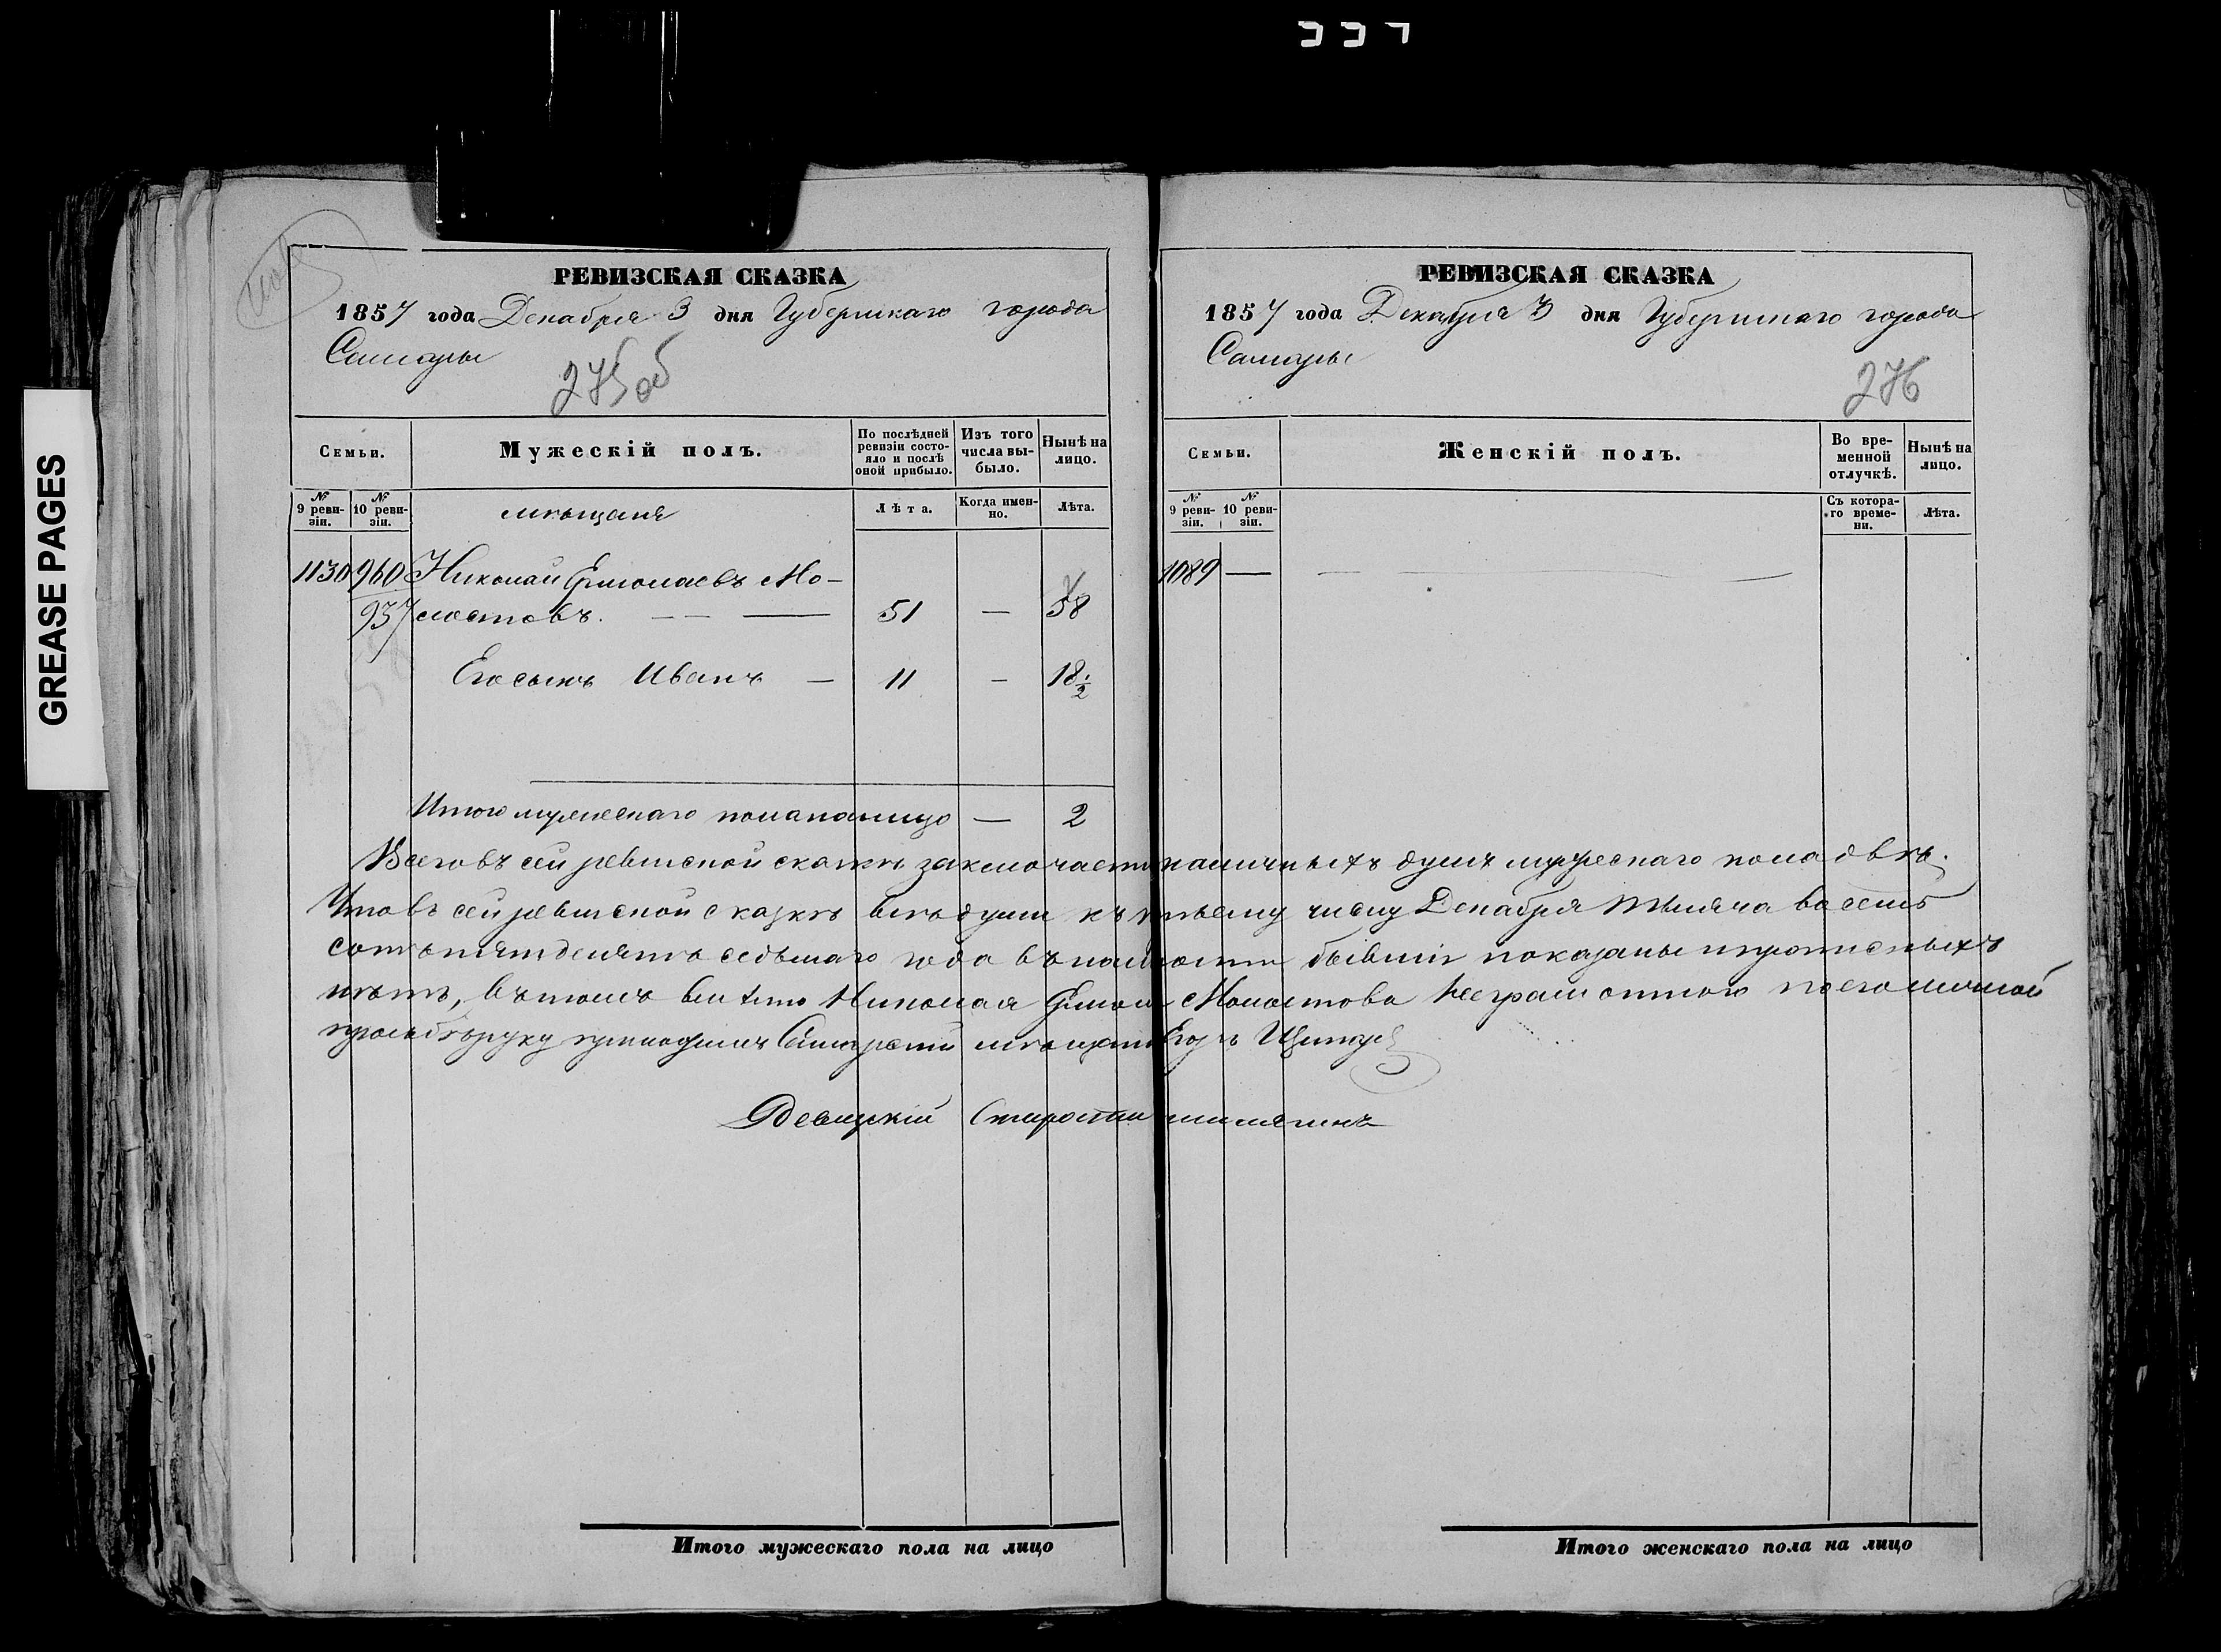 GREASE PAGES
РЕВИЗСКАЯ СКАЗКА
1857 года Декабря 3 дня Губернскаго города
Самары
275 об
Семьи.
Мужескій полъ.
По послѣдней ревизіи состояло и послѣ оной прибыло.
Изъ того числа выбыло.
Нынѣ на лицо.
№ 9 ревизіи.
№ 10 ревизіи.
мѣщане
Лѣта.
Когда именно.
Лѣта.
1130 960 Николай Ермолаевъ Мо-
937 лостовъ. — — — 51 — 58
Его сынъ Иванъ — 11 — 18 1/2
Итого мужескаго пола налицо — 2
РЕВИЗСКАЯ СКАЗКА
1857 года Декабря 3 дня Губернскаго города
Самары
276
Семьи.
Женскій полъ.
Во временной отлучкѣ.
Нынѣ на лицо.
№ 9 ревизіи.
№ 10 ревизіи.
Съ котораго времени.
Лѣта.
1089 — — —
Всего въ сей ревизской сказкѣ заключается наличныхъ душъ мужескаго пола двѣ.
Что въ сей ревизской сказкѣ всѣ души къ третьему числу Декабря тысяча восемь
сотъ пятдесятъ седьмаго года въ наличности бывшіе показаны и прописныхъ
нѣтъ, въ томъ вмѣсто Николая Ермол Молостова неграмотнаго по его личной
прозьбѣ руку приложилъ Самарскій мѣщанинъ Егоръ
Итого мужескаго пола на лицо
Итого женскаго пола на лицо